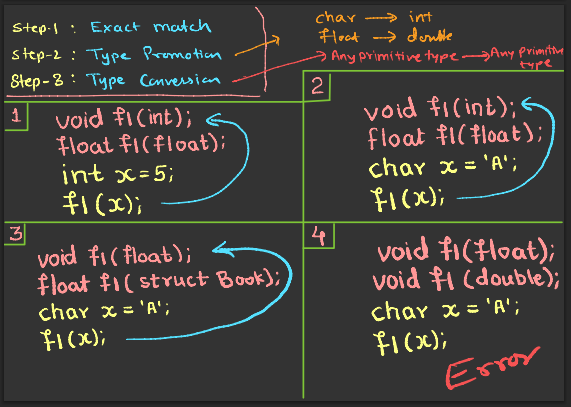 Step-1 : Exact match
Step-2 : Type Promotion
Step-3 : Type Conversion
char → int
float → double
Any primitive type → Any primitive type
1
void f1(int);
float f1(float);
int x=5;
f1(x);
2
void f1(int);
float f1(float);
char x = 'A';
f1(x);
3
void f1(float);
float f1(struct Book);
char x = 'A';
f1(x);
4
void f1(float);
void f1(double);
char x = 'A';
f1(x);
Error